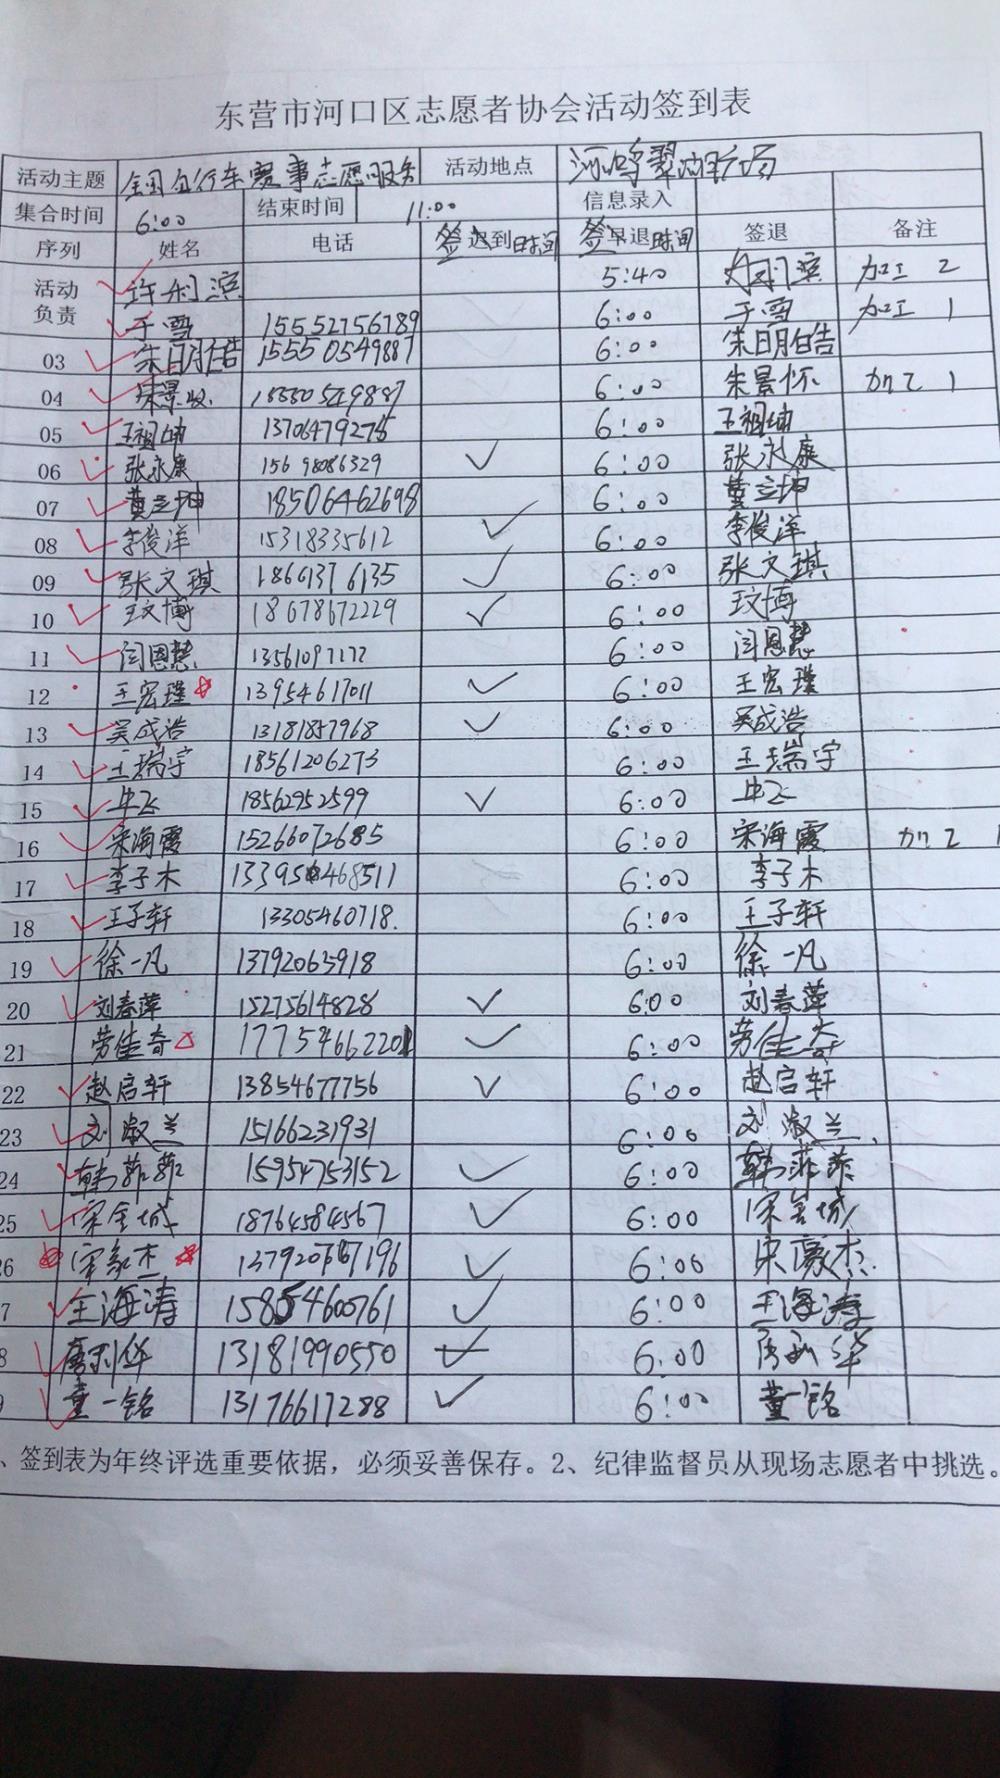 东营市河口区志愿者协会活动签到表
活动主题 全国自行车赛事志愿服务 活动地点 河鸣翠湖广场
集合时间 6:00 结束时间 11:00 信息录入
序列 姓名 电话 签迟到时间 签早退时间 签退 备注
活动负责 许利滨 5:40 许利滨 加工 2
于雪 15552756789 6:00 于雪 加工 1
03 朱明皓 15550549887 6:00 朱明皓
04 朱景怀 18550549887 6:00 朱景怀 加工 1
05 王祖坤 13706479275 6:00 王祖坤
06 张永康 15698086329 ✓ 6:00 张永康
07 黄立坤 18506462698 6:00 黄立坤
08 李俊洋 15318335612 ✓ 6:00 李俊洋
09 张文琪 18661376135 ✓ 6:00 张文琪
10 王文博 18678672229 ✓ 6:00 王文博
11 闫恩慧 13561097172 6:00 闫恩慧
12 王宏瑾 13954617011 ✓ 6:00 王宏瑾
13 吴成浩 13181857968 ✓ 6:00 吴成浩
14 王瑞宇 18561206273 6:00 王瑞宇
15 牛飞 18562952599 ✓ 6:00 牛飞
16 宋海霞 15266072685 6:00 宋海霞 加工
17 李子木 13395468511 6:00 李子木
18 王子轩 13305460718. 6:00 王子轩
19 徐一凡 13792065918 6:00 徐一凡
20 刘春萍 15275614828 ✓ 6:00 刘春萍
21 劳佳奇 17754662201 ✓ 6:00 劳佳奇
22 赵启轩 13854677756 ✓ 6:00 赵启轩
23 刘淑兰 15166231931 6:00 刘淑兰
24 韩菲菲 15954753152 ✓ 6:00 韩菲菲
25 宋金城 18764584567 ✓ 6:00 宋金城
26 宋豪杰 ✓ 6:00 宋豪杰
7 王海涛 15854600761 ✓ 6:00 王海涛
8 唐利华 13181990550 ✓ 6:00 唐利华
9 董一铭 13176617288 ✓ 6:00 董一铭
、签到表为年终评选重要依据，必须妥善保存。2、纪律监督员从现场志愿者中挑选。